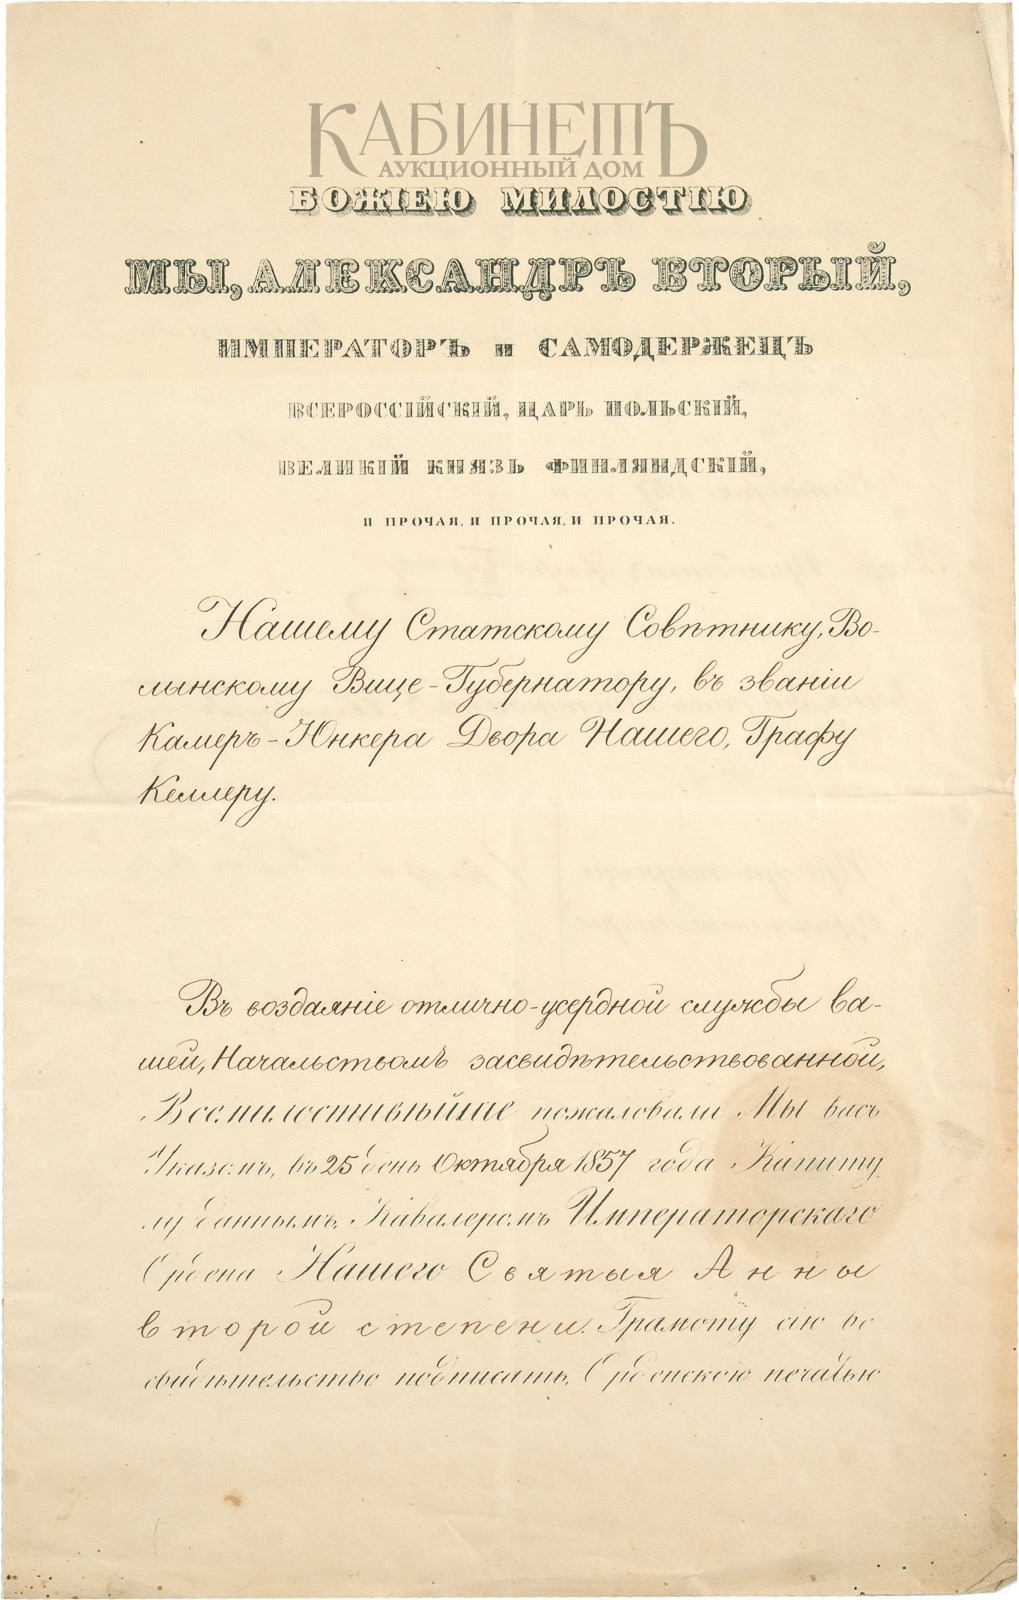 КАБИНЕТЪ
АУКЦИОННЫЙ ДОМ
БОЖІЕЮ МИЛОСТІЮ
МЫ, АЛЕКСАНДРЪ ВТОРЫЙ,
ИМПЕРАТОРЪ и САМОДЕРЖЕЦЪ
ВСЕРОССІЙСКІЙ, ЦАРЬ ПОЛЬСКІЙ,
ВЕЛИКІЙ КНЯЗЬ ФИНЛЯНДСКІЙ,
И ПРОЧАЯ, И ПРОЧАЯ, И ПРОЧАЯ.
Нашему Статскому Совѣтнику, Во-
лынскому Вице-Губернатору, въ званіи
Камеръ-Юнкера Двора Нашего, Графу
Келлеру.
Въ воздаяніе отлично-усердной службы ва-
шей, Начальствомъ засвидѣтельствованной,
Всемилостивѣйше пожаловали Мы васъ
Указомъ, въ 25 день Октября 1857 года Капиту
лу даннымъ, Кавалеромъ Императорскаго
Ордена Нашего Святыя Анны
второй степени. Грамоту сію во
свидѣтельство подписать, Орденскою печатью